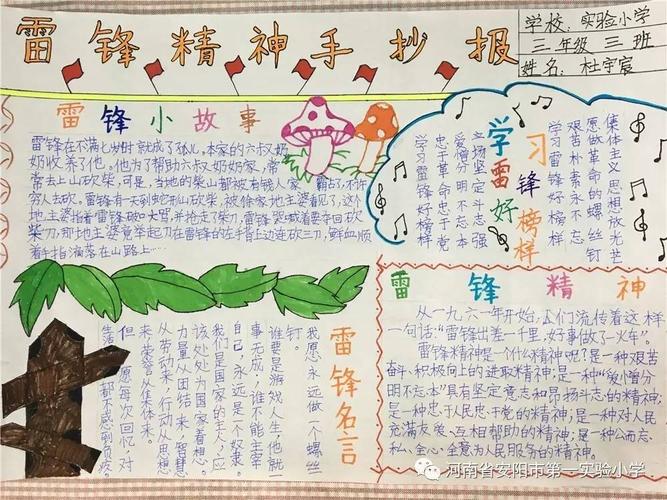 雷锋精神手抄报
学校：实验小学
三年级三班
姓名：杜宇宸
雷锋小故事
雷锋在不满七岁时就成了孤儿。本家的六叔奶
奶收养了他。他为了帮助六叔奶奶家，常
常去上山砍柴，可是，当地的柴山都被有钱人家霸占了，不许
穷人去砍。雷锋有一天到蛇形山砍柴，被徐家地主婆看见了，这个
地主婆指着雷锋破口大骂，并抢走了柴刀，雷锋哭喊着要夺回砍
柴刀，那地主婆竟举起刀在雷锋的左手背上边连砍三刀，鲜血顺
着手指滴落在山路上……
学习雷锋好榜样
学习雷锋好榜样
忠于革命忠于党
爱憎分明不忘本
立场坚定斗志强
学习雷锋好榜样
艰苦朴素永不忘
愿做革命的螺丝钉
集体主义思想放光芒
雷锋名言
我愿永远做一个螺丝
钉。
谁要是游戏人生，他就一
事无成，谁不能主宰
自己，永远是一个奴隶。
我们是国家的主人，应
该处处为国家着想。
力量从团结来，智慧
从劳动来，行动从思想
来，荣誉从集体来。
但愿每次回忆，对
生活都不感到负疚。
雷锋精神
从一九六一年开始，人们流传着这样
一句话：“雷锋出差一千里，好事做了一火车”。
雷锋精神是一个什么精神呢？是一种艰苦
奋斗、积极向上的进取精神；是一种“爱憎分
明不忘本”具有坚定意志和昂扬斗志的精神；
是一种忠于人民忠于党的精神；是一种对人民
充满友爱、互相帮助的精神；是一种公而忘
私、全心全意为人民服务的精神。
河南省安阳市第一实验小学